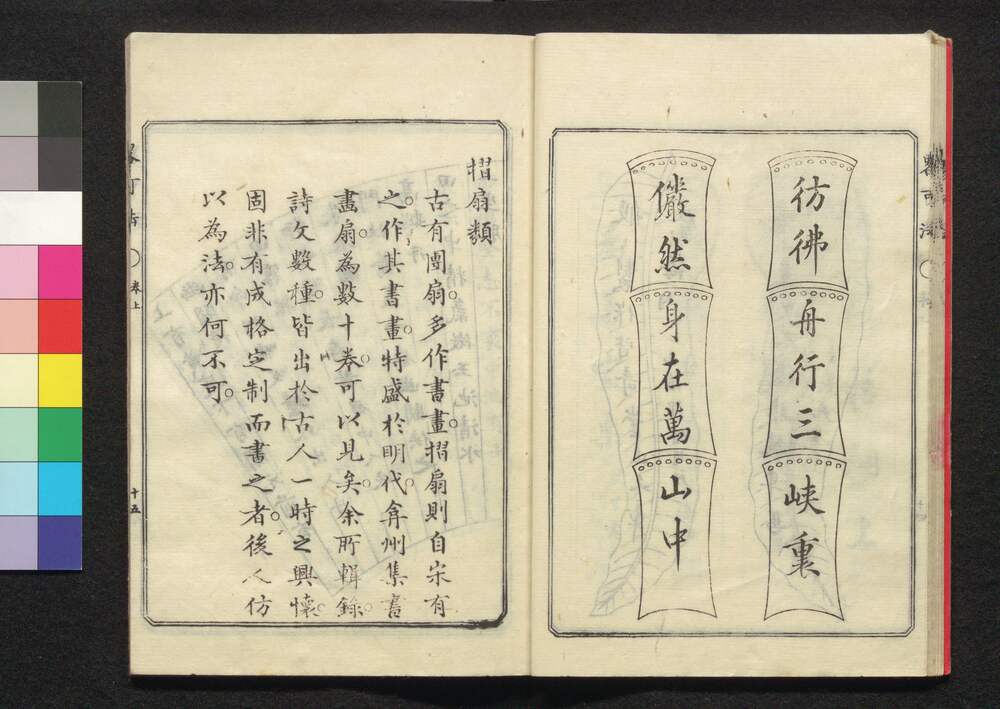 彷彿舟行三峽裏
儼然身在萬山中
摺扇類
古有團扇。多作書畫。摺扇則自宋有
之。作其書畫特盛於明代。弇州集書
畫扇。為數十卷。可以見矣。余所輯錄。
詩文數種。皆出於古人一時之興懷。
固非有成格定制而書之者。後人仿
以為法。亦何不可。
卷上
十五